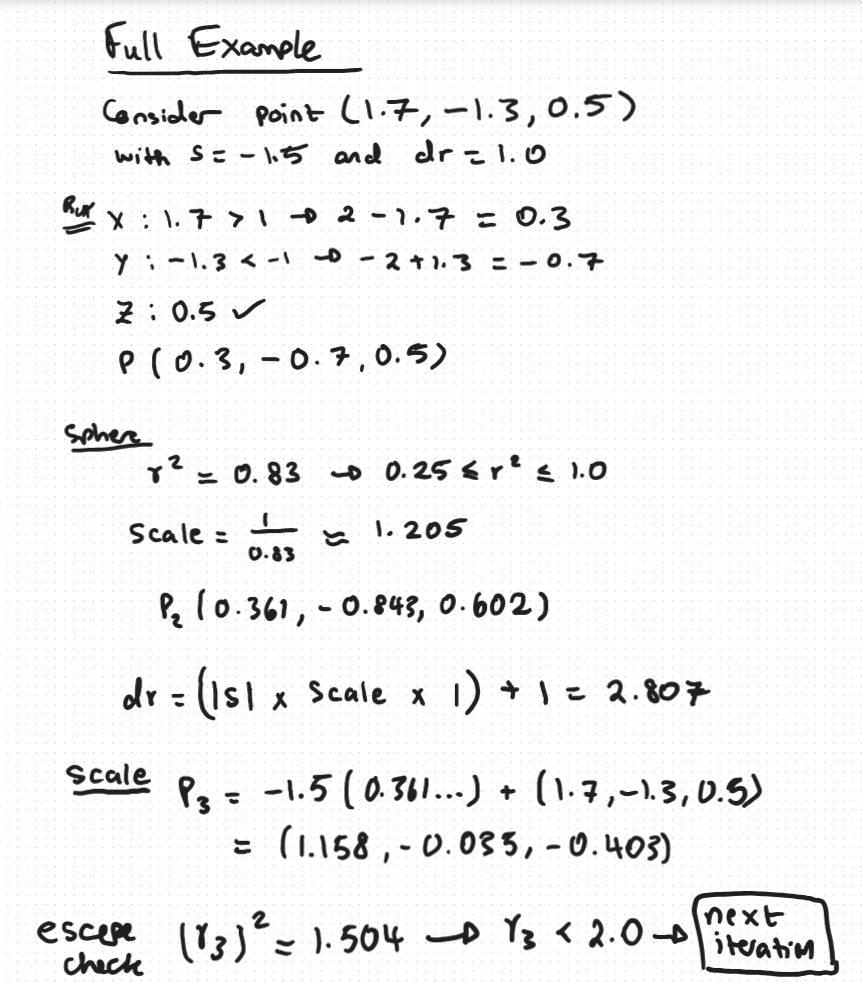 Full Example
Consider point (1.7, -1.3, 0.5)
with s = -1.5 and dr = 1.0
Box x : 1.7 > 1 → 2 - 1.7 = 0.3
y : -1.3 < -1 → -2 + 1.3 = -0.7
z : 0.5 ✓
P (0.3, -0.7, 0.5)
Sphere
r² = 0.83 → 0.25 ≤ r² ≤ 1.0
Scale = 1/0.83 ≈ 1.205
P₂ (0.361, -0.843, 0.602)
dr = (|s| x Scale x 1) + 1 = 2.807
scale P₃ = -1.5 (0.361...) + (1.7, -1.3, 0.5)
= (1.158, -0.035, -0.403)
escape check (r₃)² = 1.504 → r₃ < 2.0 → next iteration